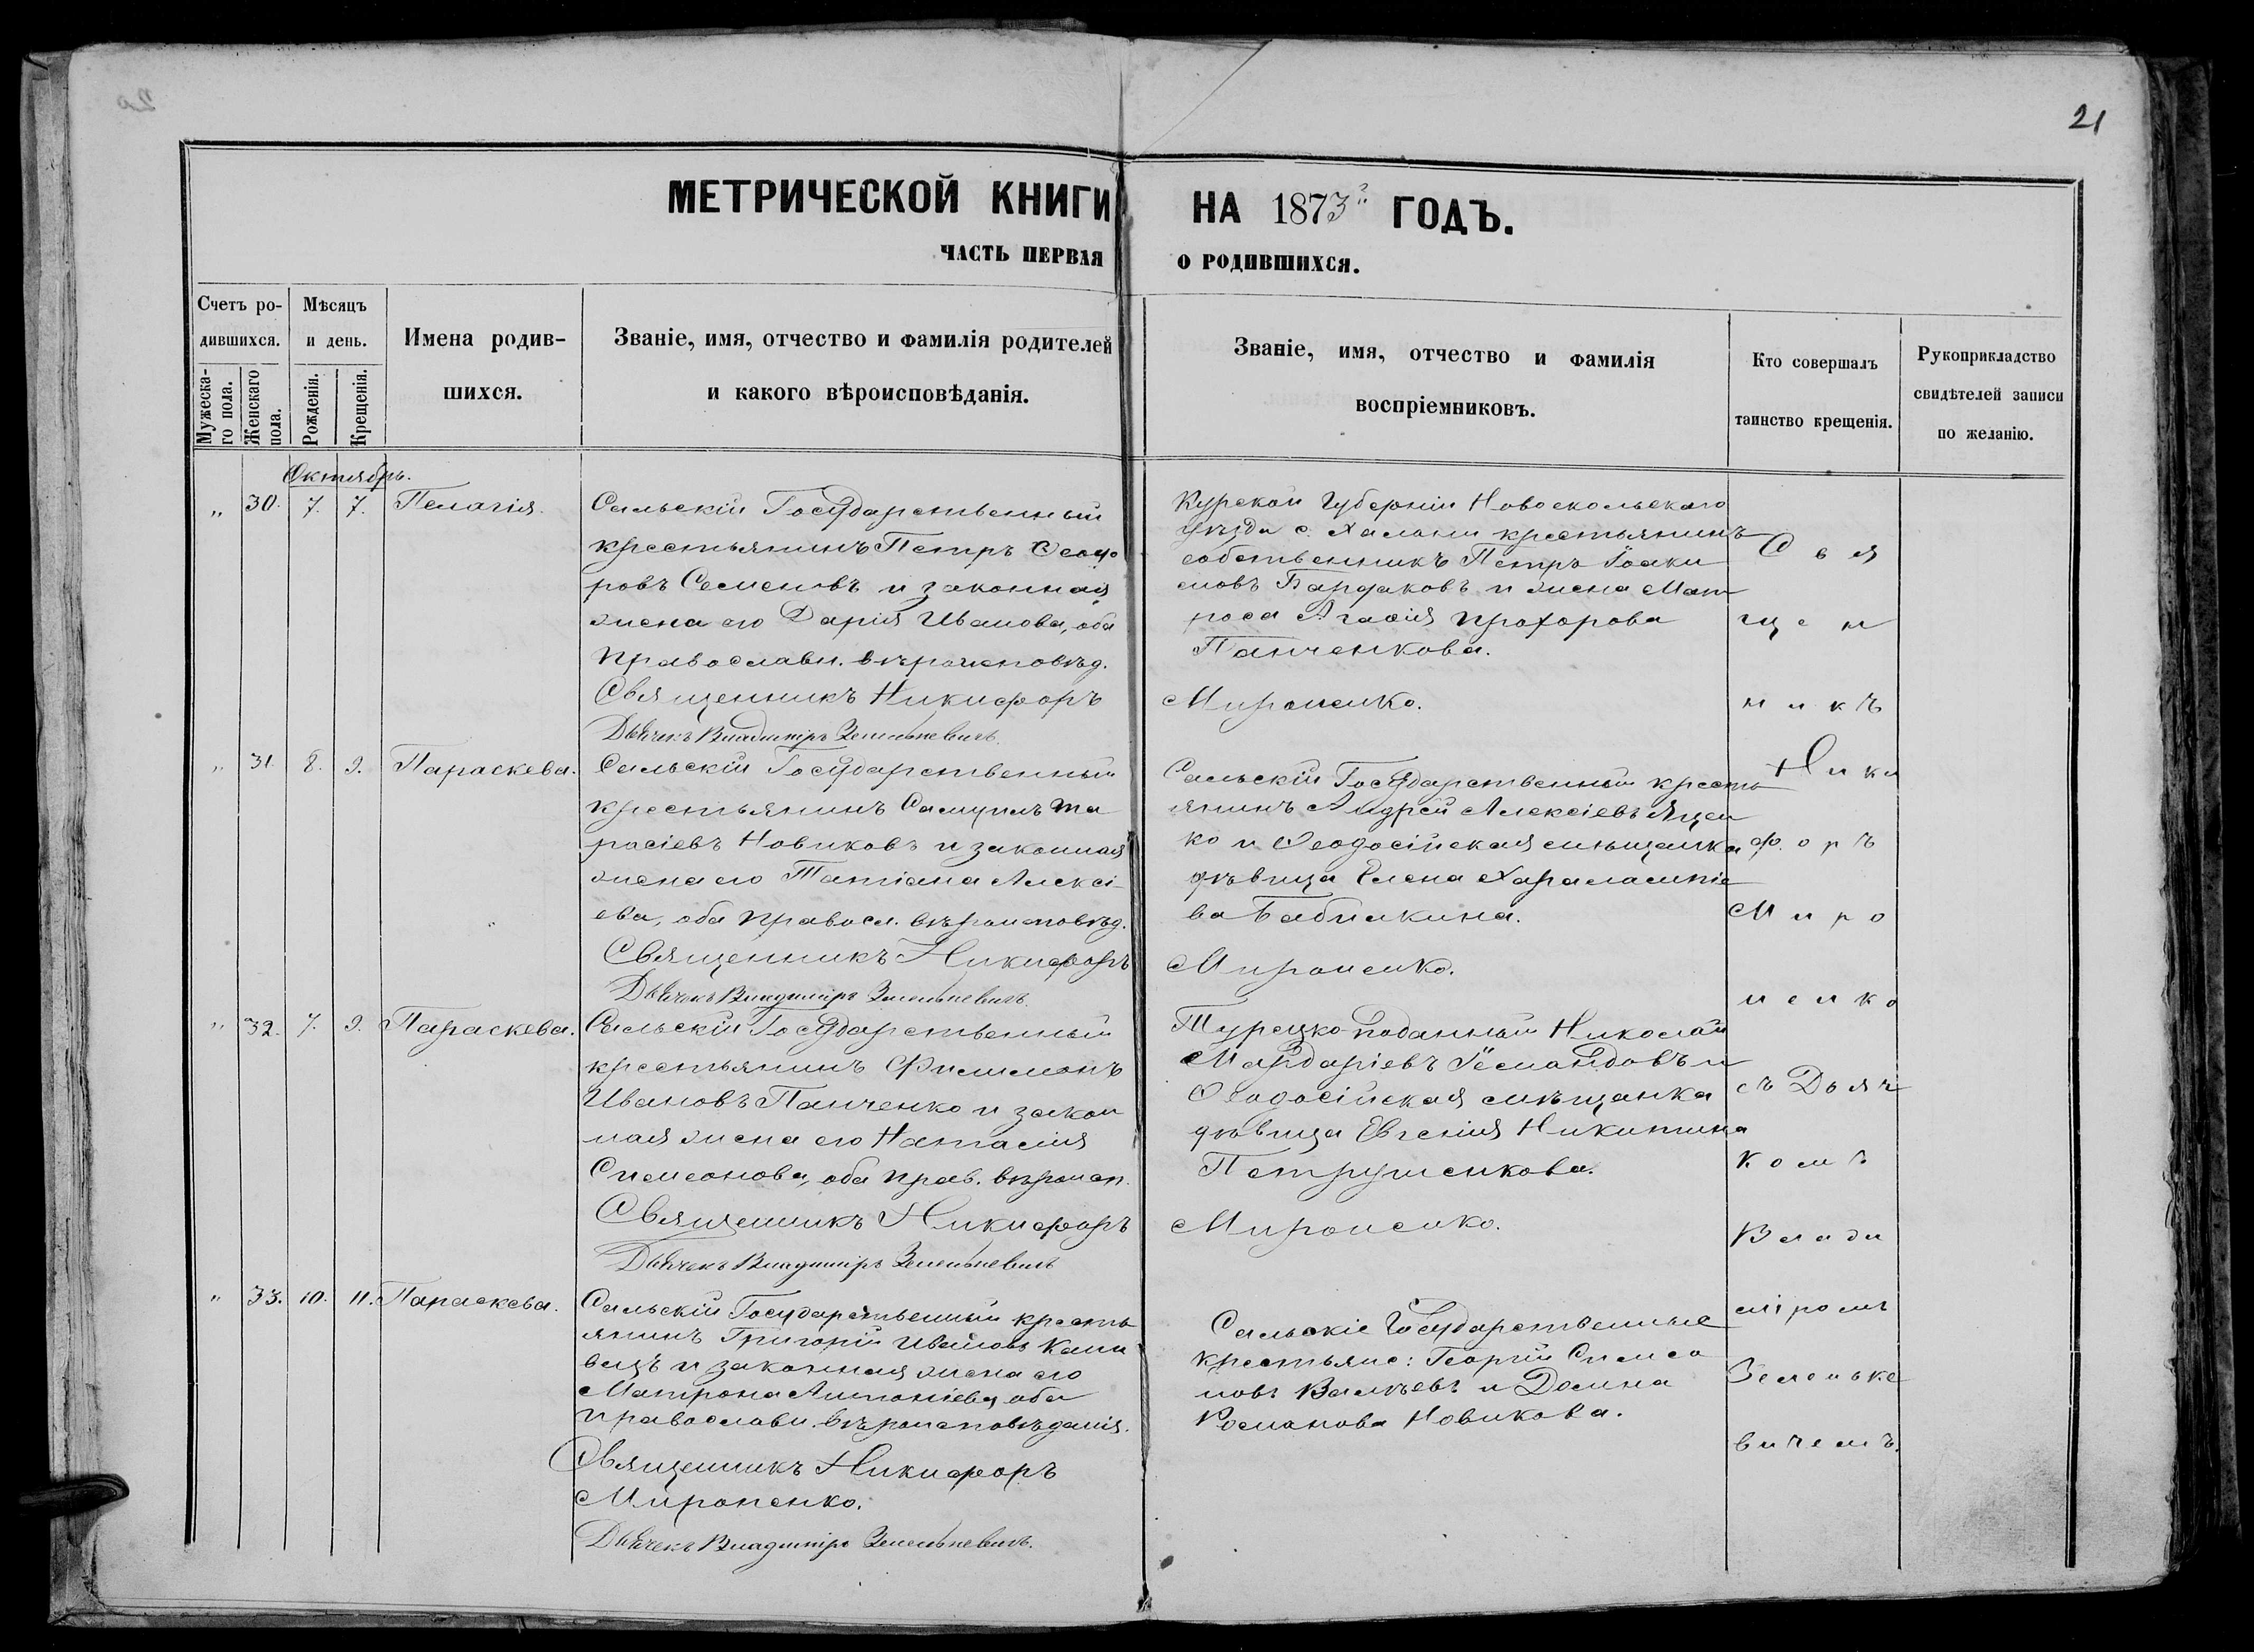 20
21
МЕТРИЧЕСКОЙ КНИГИ НА 1873й ГОДЪ.
ЧАСТЬ ПЕРВАЯ О РОДИВШИХСЯ.
Счетъ ро-
дившихся.
Мужеска-
го пола.
Женскаго
пола.
Мѣсяцъ
и день.
Рожденія.
Крещенія.
Имена родив-
шихся.
Званіе, имя, отчество и фамилія родителей
и какого вѣроисповѣданія.
Званіе, имя, отчество и фамилія
воспріемниковъ.
Кто совершалъ
таинство крещенія.
Рукоприкладство
свидѣтелей записи
по желанію.
Октябрь.
„ 30. 7. 7. Пелагія.
Государственный
крестьянинъ Петръ Ѳеодо
ровъ Семеновъ и законная
жена его Дарія Иванова, оба
православн. вѣроисповѣд.
Священникъ Никифоръ
Дьячекъ Владиміръ Зеленькевичъ.
Курской Губерніи Новоскольскаго
уѣзда с. Халани крестьянинъ
собственникъ Петръ Іоаки
мовъ Бардаковъ и жена Мат
роса Агафія Прохорова
Панченкова.
Мироненко.
„ 31. 8. 9. Параскева.
Государственный
крестьянинъ Самуилъ Та
расіевъ Новиковъ и законная
жена его Татіана Алексі-
ева, оба правосл. вѣроисповѣд.
Священникъ Никифоръ
Дьячекъ Владиміръ Зеленькевичъ.
Государственный кресть
янинъ Андрей Алексіевъ Яцен
ко и Ѳеодосійская мѣщанка
дѣвица Елена Харалампіе
ва Бабичкина.
Мироненко.
„ 32. 7. 9. Параскева.
Государственный
крестьянинъ Филимонъ
Ивановъ Панченко и закон
ная жена его Наталія
Симеонова, оба прав. вѣроисп.
Священникъ Никифоръ
Дьячекъ Владиміръ Зеленькевичъ
Турецко-поданный Николай
Мардаріевъ и
Ѳеодосійская мѣщанка
дѣвица Евгенія Никитина
Петрушенкова.
Мироненко.
„ 33. 10. 11. Параскева.
Государственный кресть
янинъ Григорій Ивановъ Кани
вецъ и законная жена его
Матрона Антоніева, оба
православн. вѣроисповѣданія.
Священникъ Никифоръ
Мироненко.
Дьячекъ Владиміръ Зеленькевичъ.
Государственные
крестьяне: Георгій Симео
новъ и Домна
Романова Новикова.
С в я
щ е н
н и к ъ
Н и ки
ф о р ъ
М и р о
н е н к о
съ Д ь я ч
к о м ъ
В л а ди
міромъ
Зеленьке
вичемъ.